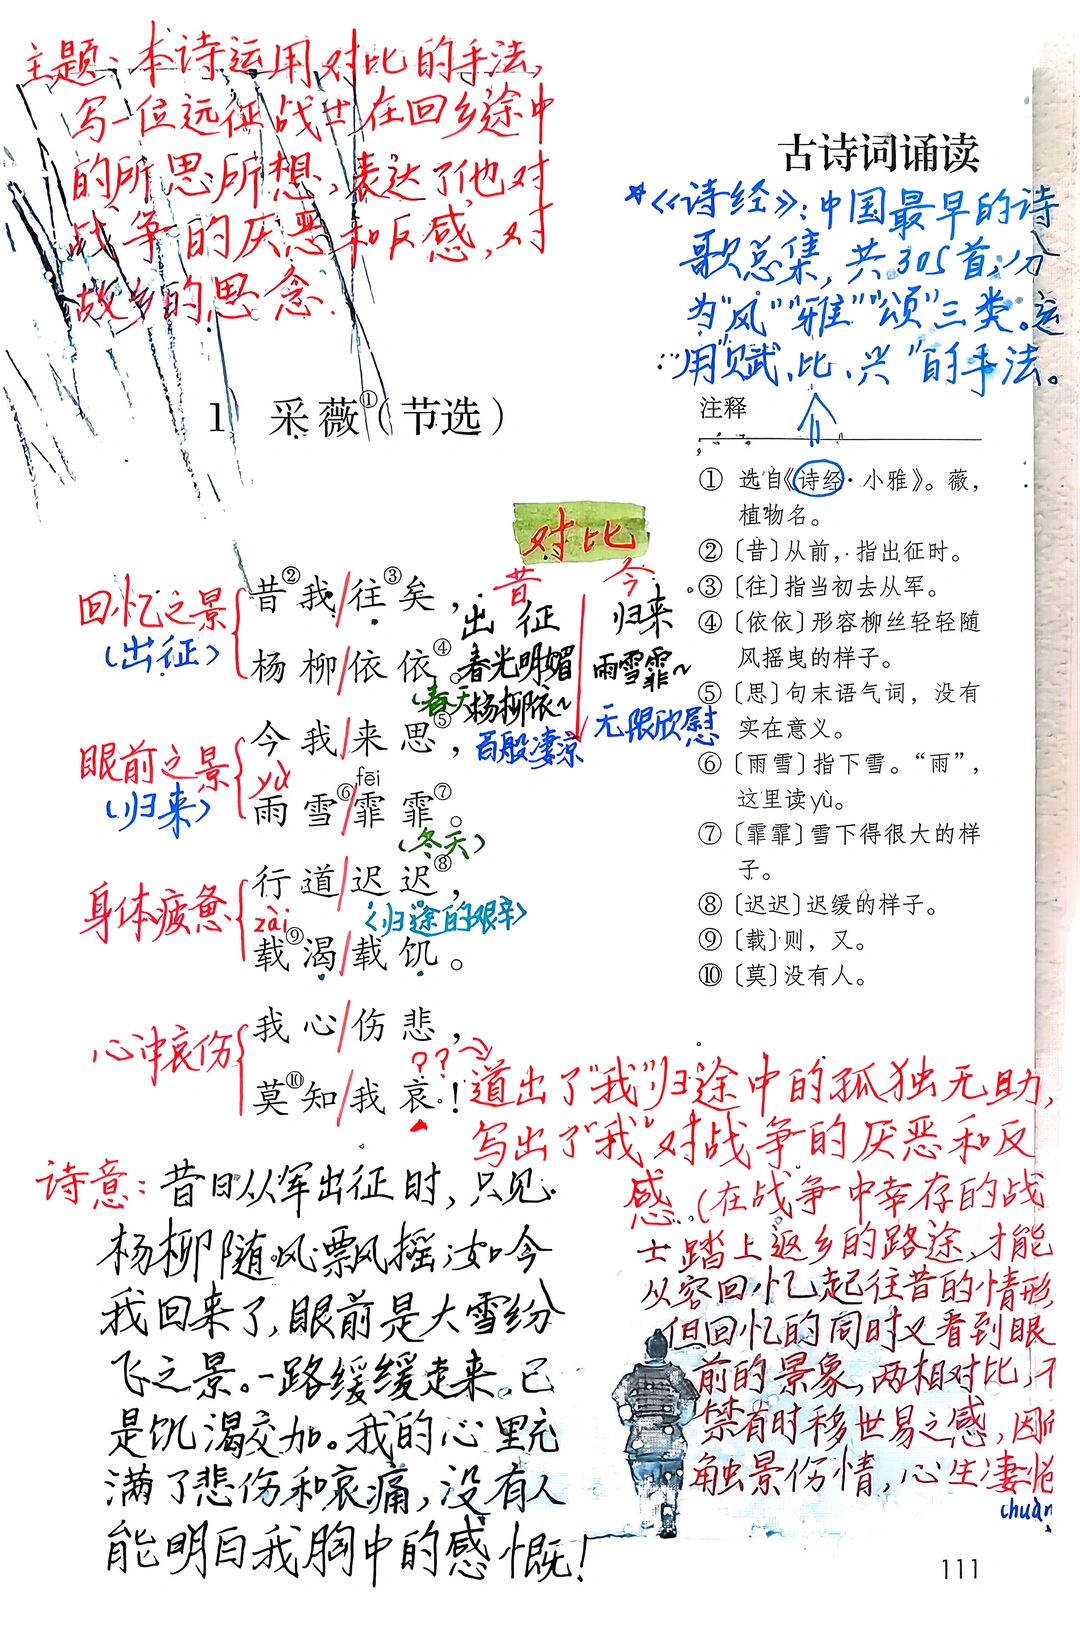 主题:本诗运用对比的手法,
写一位远征战士在回乡途中
的所思所想,表达了他对
战争的厌恶和反感,对
故乡的思念.
古诗词诵读
*《诗经》:中国最早的诗
歌总集,共305首,分
为"风""雅""颂"三类。运
用"赋、比、兴"的手法。
1 采薇①(节选)
对比
昔 今
出征 归来
春光明媚 雨雪霏~
杨柳依~
百般凄凉 无限欣慰
回忆之景
(出征)
昔②我/往③矣,
杨柳/依依④。
(春天)
眼前之景
(归来)
今我/来思⑤,
yù fēi
雨雪⑥/霏霏⑦。
(冬天)
身体疲惫
行道/迟迟⑧,
zài 〈归途的艰辛〉
载⑨渴/载饥。
心冲哀伤
我心/伤悲,
莫⑩知/我哀!
??
注释
① 选自《诗经·小雅》。薇,
植物名。
②〔昔〕从前,指出征时。
③〔往〕指当初去从军。
④〔依依〕形容柳丝轻轻随
风摇曳的样子。
⑤〔思〕句末语气词,没有
实在意义。
⑥〔雨雪〕指下雪。“雨”,
这里读yù。
⑦〔霏霏〕雪下得很大的样
子。
⑧〔迟迟〕迟缓的样子。
⑨〔载〕则,又。
⑩〔莫〕没有人。
道出了"我"归途中的孤独无助,
写出了"我"对战争的厌恶和反
感.(在战争中幸存的战
士踏上返乡的路途,才能
从容回忆起往昔的情形
但回忆的同时又看到眼
前的景象,两相对比,不
禁有时移世易之感,因而
触景伤情,心生凄怆
chuàn
诗意:昔日从军出征时,只见
杨柳随风飘摇;如今
我回来了,眼前是大雪纷
飞之景。一路缓缓走来,已
是饥渴交加。我的心里充
满了悲伤和哀痛,没有人
能明白我胸中的感慨!
111